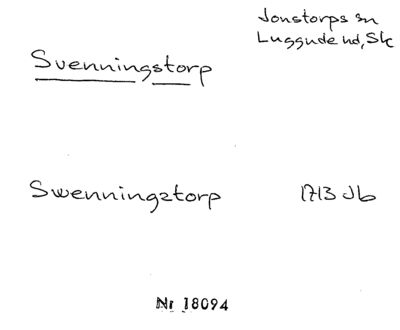 Jonstorps sn
Luggude hd, Sk
Svenningstorp
Swenningztorp 1713 Jb
Nr 18094